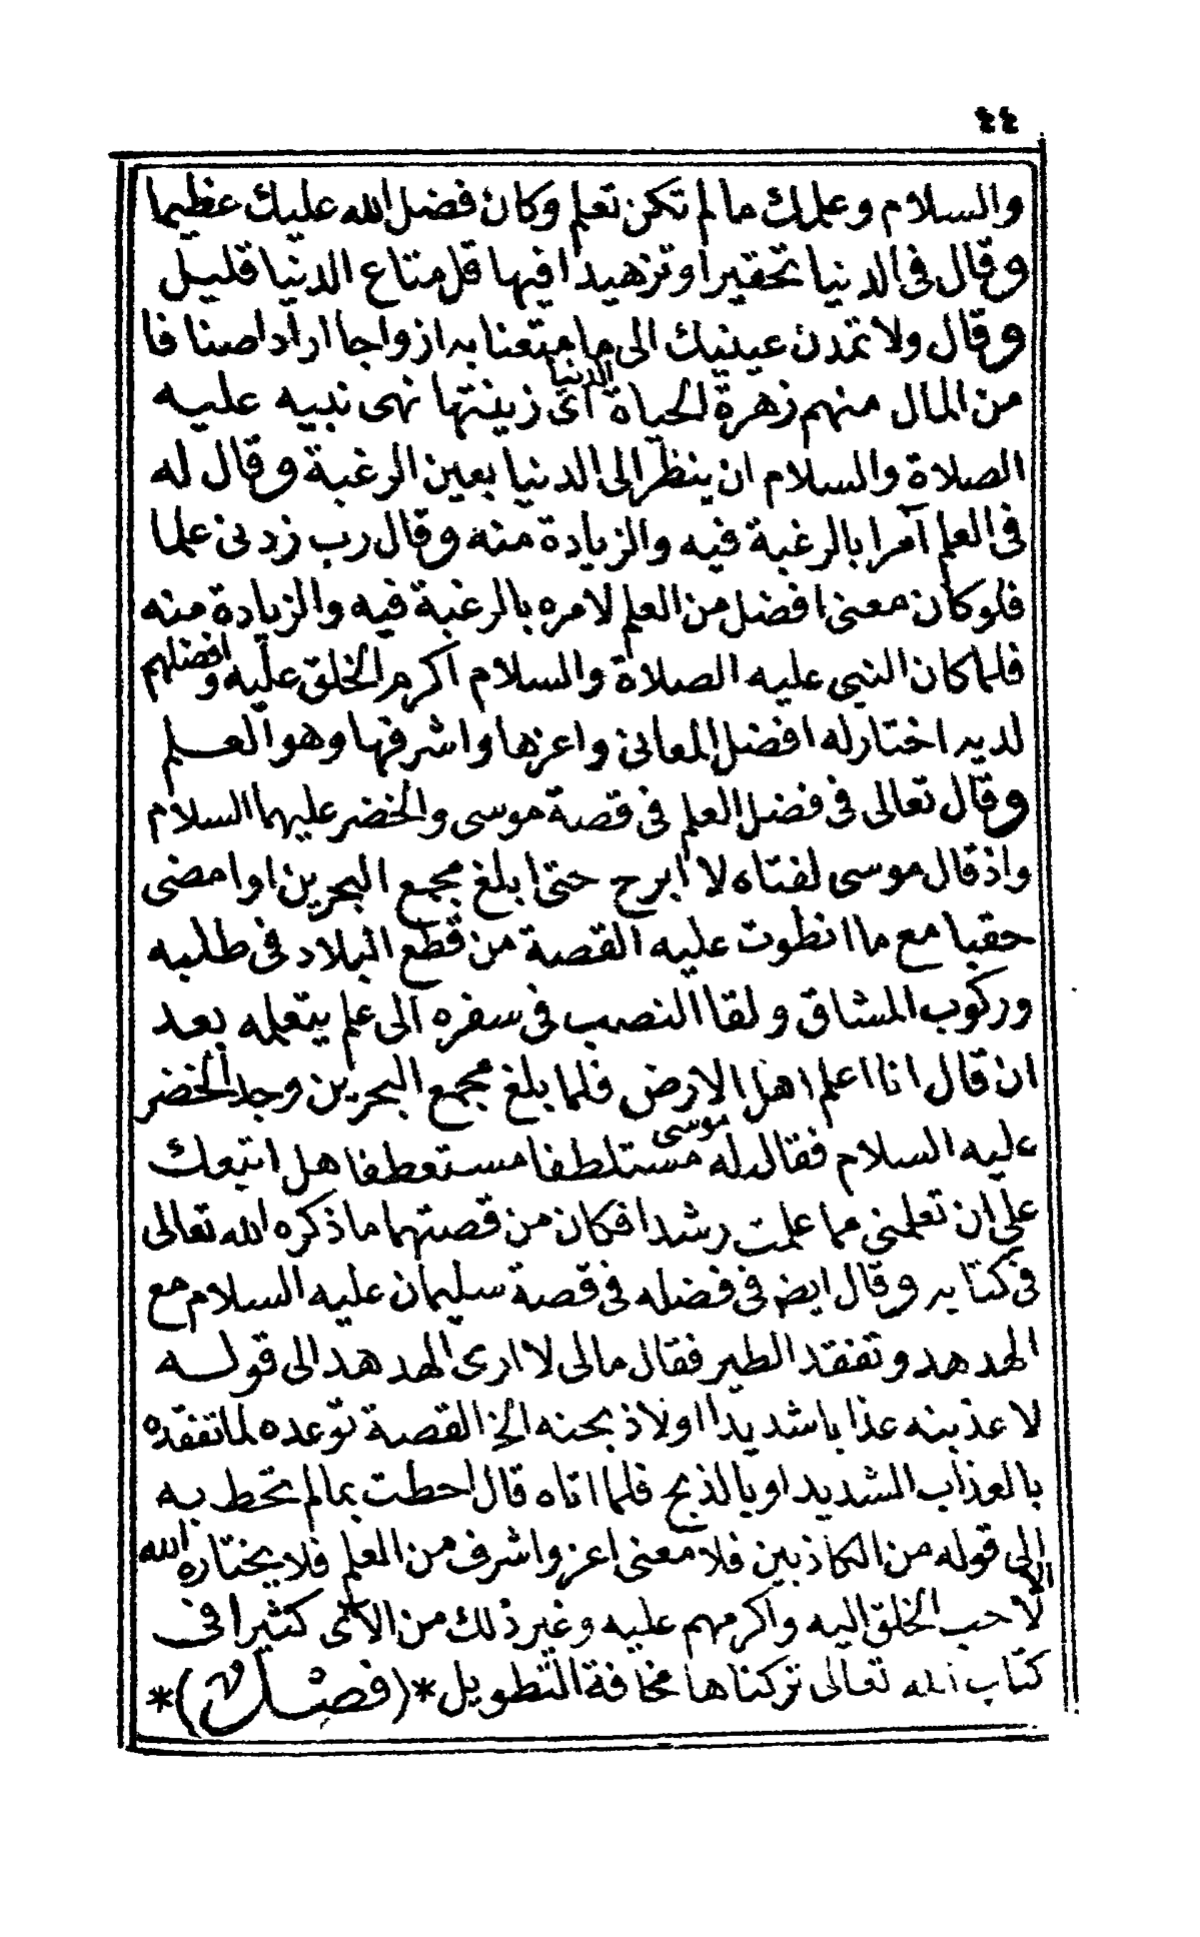 ٤٤
والسلام وعلمك ما لم تكن تعلم وكان فضل الله عليك عظيما
وقال فى الدنيا تحقيرا وتزهيدا فيها قل متاع الدنيا قليل
وقال ولا تمدن عينيك الى ما متعنا به ازواجا اراد اصنافا
من المال منهم زهرة الحياة الدنيا اى زينتها نهى نبيه عليه
الصلاة والسلام ان ينظر الى الدنيا بعين الرغبة وقال له
فى العلم آمرا بالرغبة فيه والزيادة منه وقال رب زدنى علما
فلو كان معنى افضل من العلم لامره بالرغبة فيه والزيادة منه
فلما كان النبى عليه الصلاة والسلام اكرم الخلق عليه وافضلهم
لديه اختار له افضل المعانى واعزها واشرفها وهو العلم
وقال تعالى فى فضل العلم فى قصة موسى والخضر عليهما السلام
واذ قال موسى لفتاه لا ابرح حتى ابلغ مجمع البحرين او امضى
حقبا مع ما انطوت عليه القصة من قطع البلاد فى طلبه
وركوب المشاق ولقا النصب فى سفره الى علم يتعلمه بعد
ان قال انا اعلم اهل الارض فلما بلغ مجمع البحرين وجد الخضر
عليه السلام فقال له موسى مستلطفا مستعطفا هل اتبعك
على ان تعلمنى مما علمت رشدا فكان من قصتهما ما ذكره الله تعالى
فى كتابه وقال ايض فى فضله فى قصة سليمان عليه السلام مع
الهدهد وتفقد الطير فقال مالى لا ارى الهدهد الى قوله
لاعذبنه عذابا شديدا اولاذبحنه الخ القصة توعده لما تفقده
بالعذاب الشديد او بالذبح فلما اتاه قال احطت بما لم تحط به
الى قوله من الكاذبين فلا معنى اعز واشرف من العلم فلا يختاره الله
الا لاحب الخلق اليه واكرمهم عليه وغير ذلك من الآى كثيرا فى
كتاب الله تعالى تركناها مخافة التطويل *(فصل)*